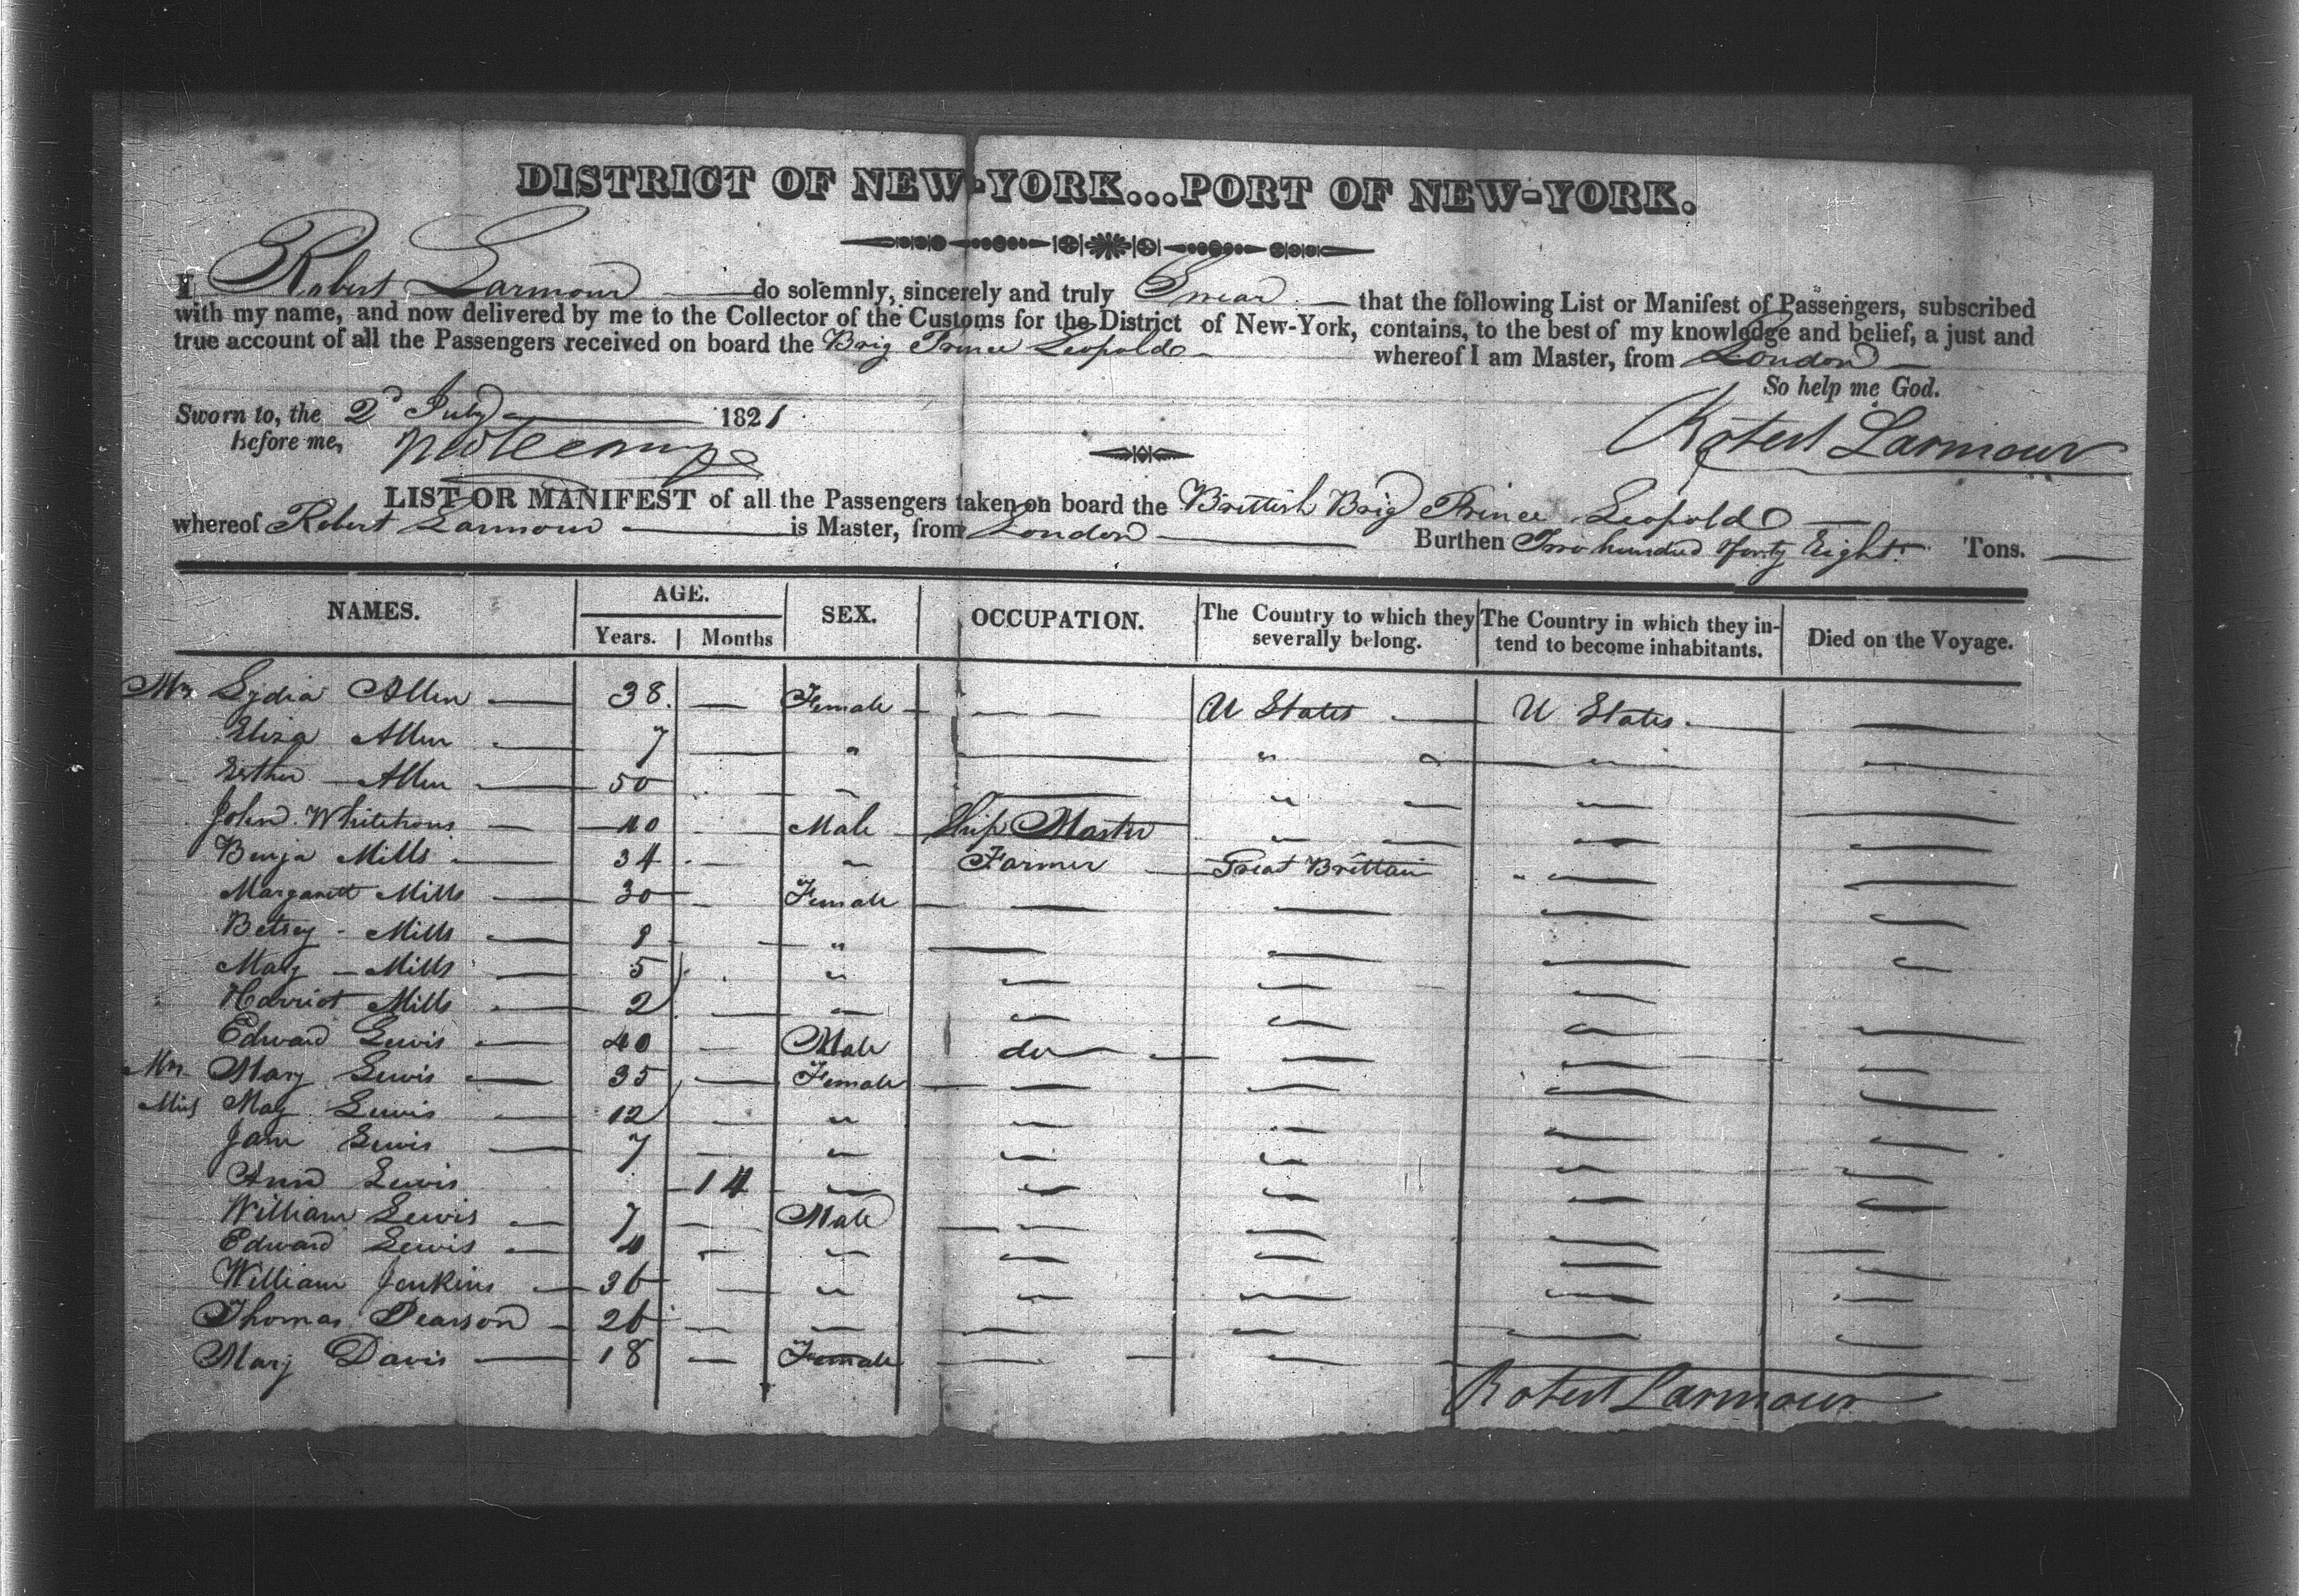 DISTRICT OF NEW-YORK...PORT OF NEW-YORK.
I, Robert Larmour do solemnly, sincerely and truly Swear that the following List or Manifest of Passengers, subscribed
with my name, and now delivered by me to the Collector of the Customs for the District of New-York, contains, to the best of my knowledge and belief, a just and
true account of all the Passengers received on board the Brig Prince Leopold whereof I am Master, from London
So help me God.
Sworn to, the 2d July 1821
before me,
Robert Larmour
LIST OR MANIFEST of all the Passengers taken on board the Brittish Brig Prince Leopold
whereof Robert Larmour is Master, from London Burthen Two hundred forty Eight Tons.
NAMES. AGE. SEX. OCCUPATION. The Country to which they severally belong. The Country in which they intend to become inhabitants. Died on the Voyage.
Years. Months
Mrs Lydia Allen 38. Female U States U States.
Eliza Allen 7 "
Esther Allen 50 "
John 40 Male Ship Master "
Benja Mills 34 " Farmer Great Brittain "
Margarett Mills 30 Female
Betsey Mills 8 "
Mary Mills 5 "
Harriot Mills 2 "
Edward Lewis 40 Male do
Mrs Mary Lewis 35 Female
Miss May Lewis 12 "
Jane Lewis 7 "
Ann Lewis 14 "
William Lewis 7 Male
Edward Lewis 4 "
William Jenkins 36 "
Thomas Pearson 26 "
Mary Davis 18 Female
Robert Larmour